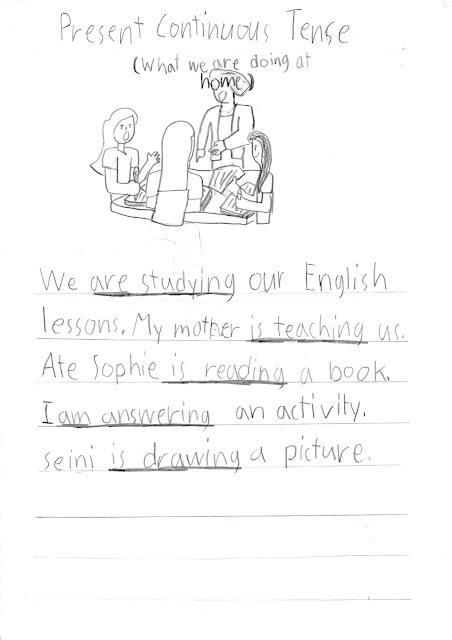 Present Continuous Tense
(What we are doing at
home)
We are studying our English
lessons. My mother is teaching us.
Ate Sophie is reading a book.
I am answering an activity.
seini is drawing a picture.